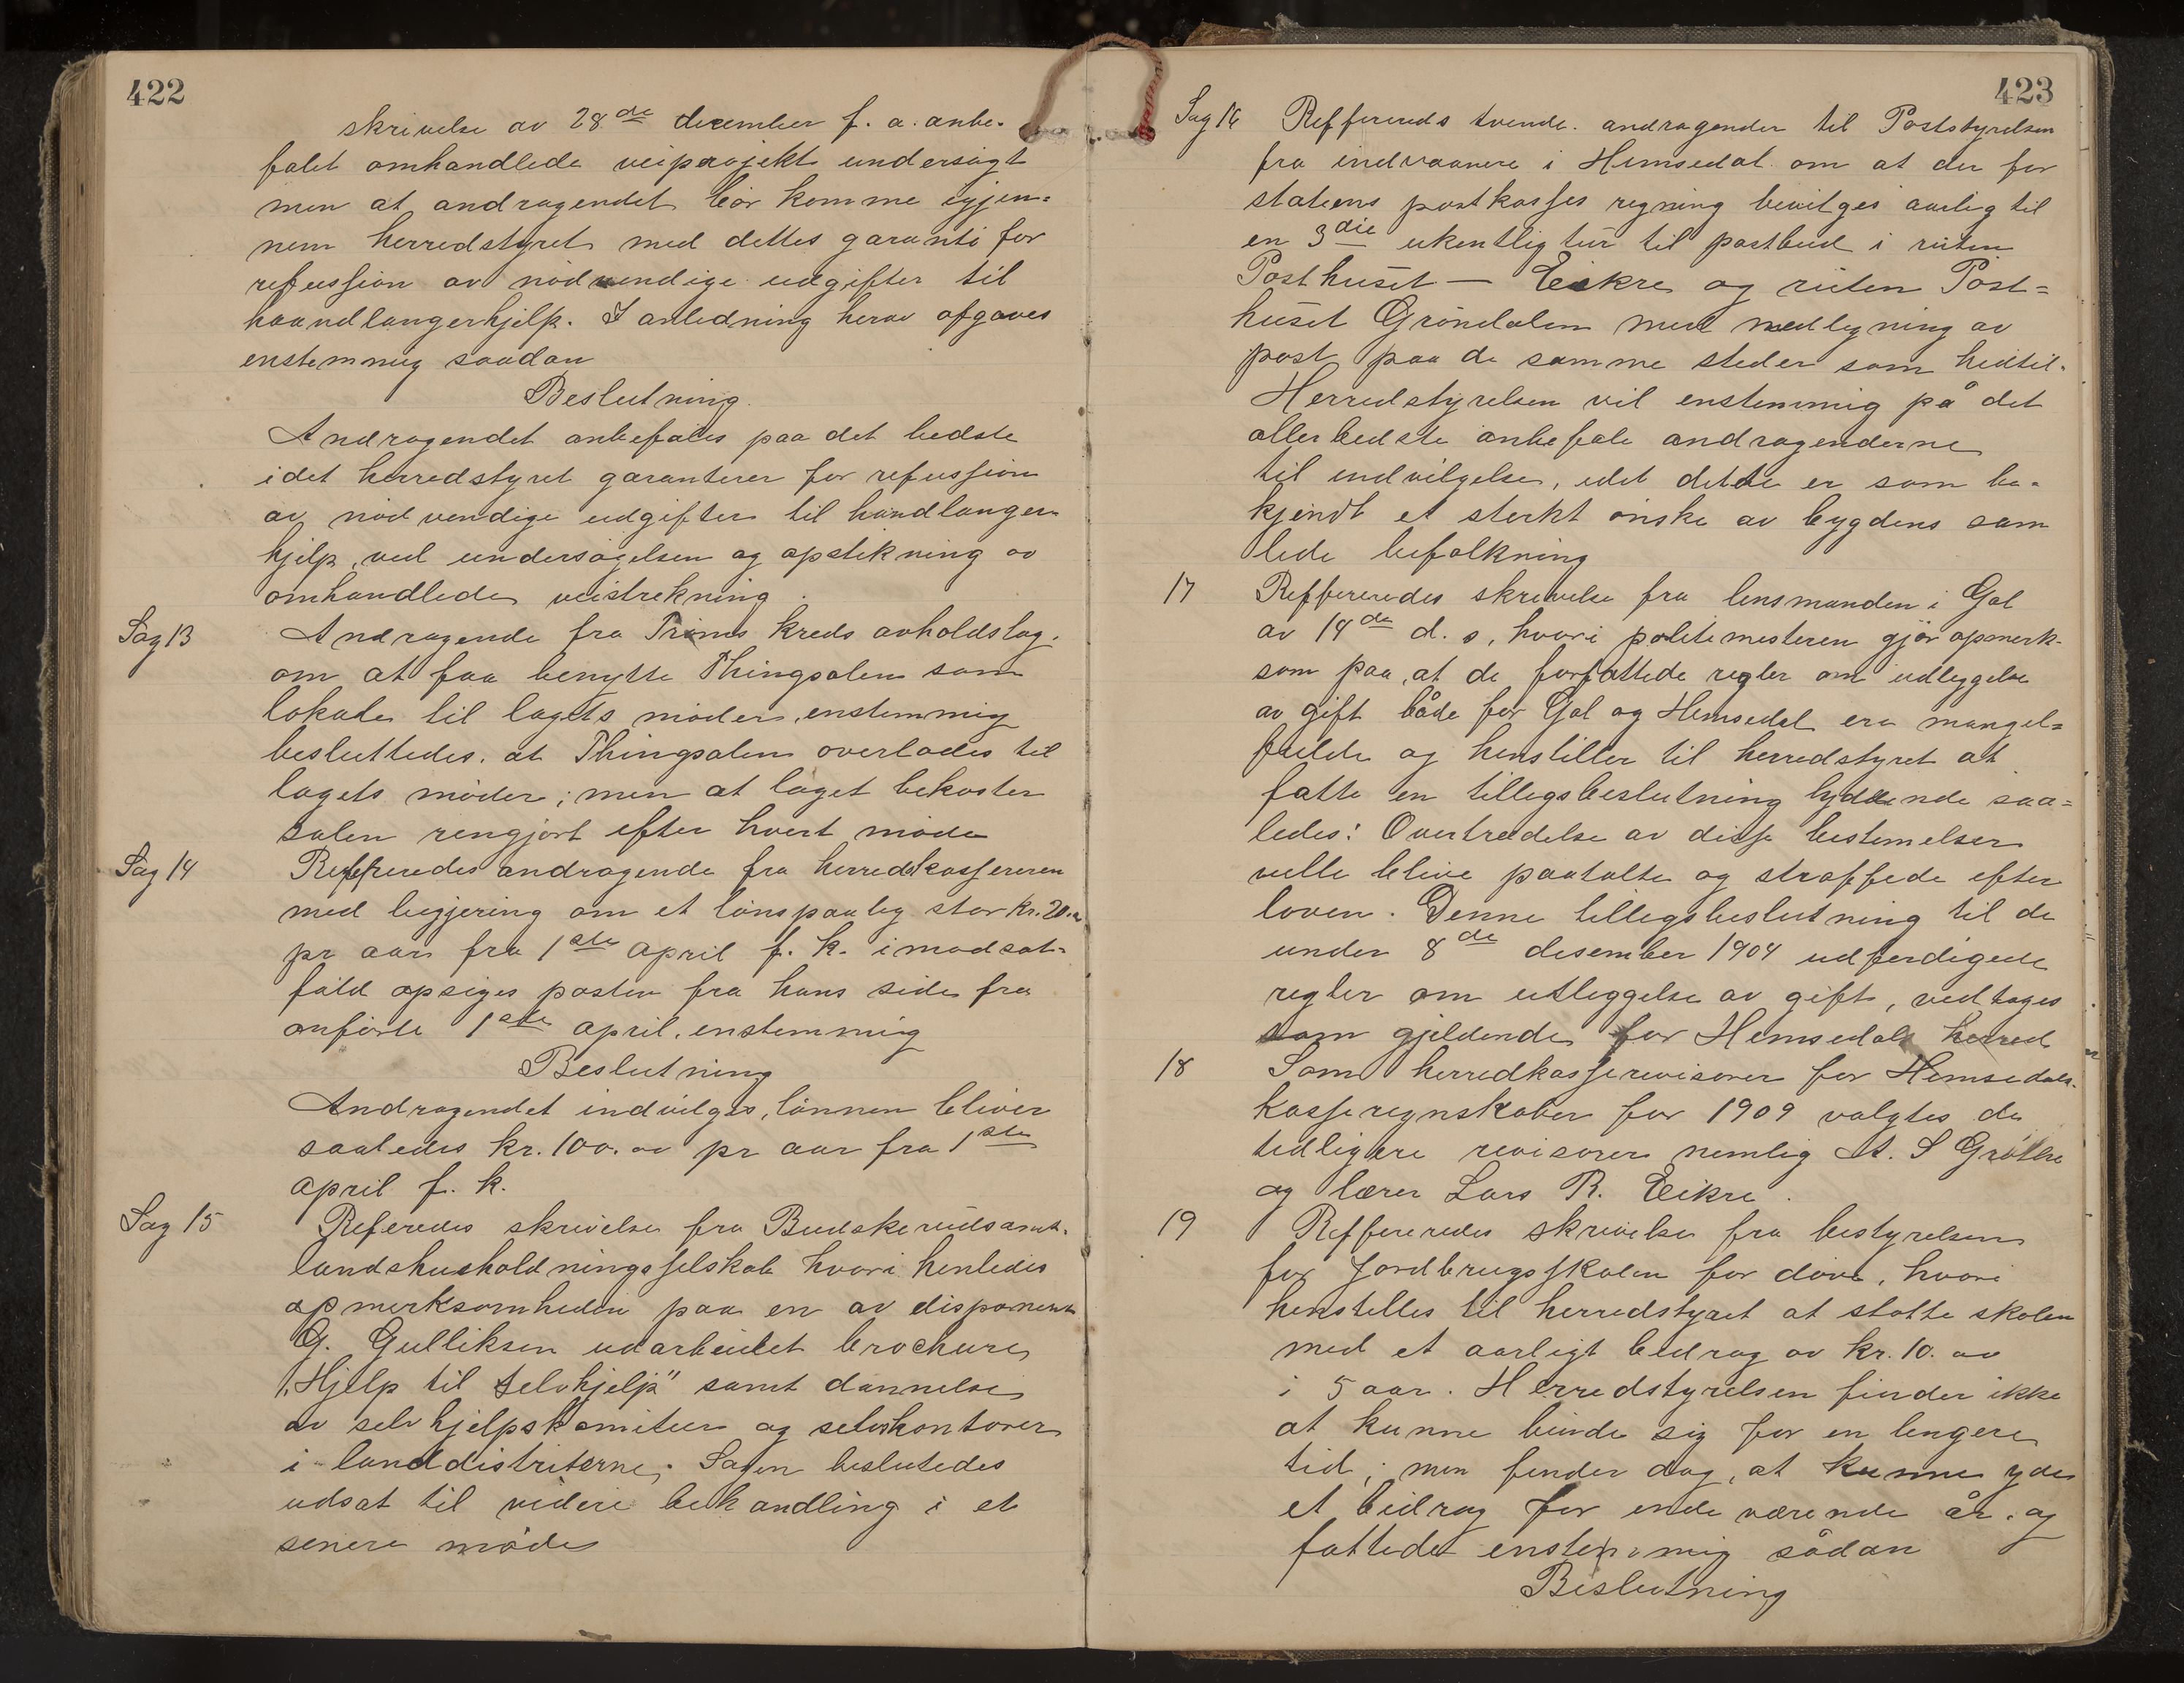 422
skrivelse av 28de december f. a. anbe-
falet omhandlede veiprojekt undersøgt
men at andragendet bør komme igjen-
nem herredstyret med dettes garanti for
refussion av nødvendige udgifter til
haandlangerhjelp. I anledning herav afgaves
enstemmig saadan
Beslutning.
Andragendet anbefales paa det bedste
idet herredstyret garanterer for refussion
av nødvendige udgifter til handlanger
hjelp, ved undersøgelsen og opstikning av
omhandlede veistrekning.
Sag 13 Andragende fra Trims kreds avholdslag.
om at faa benytte Thingsalen som
lokale til lagets møder, enstemmig
besluttedes. at Thingsalen overlades til
lagets møder; men at laget bekoster
salen rengjort efter hvert møde
Sag 14 Reffreredes andragende fra herredskassereren
med begjering om et lønspaaleg stor kr. 20.00
pr aar fra 1ste april f. k. i modsat-
fald opsiges posten fra hans side fra
anførte 1ste april. enstemmig
Beslutning
Andragendet indvilges, lønnen bliver
saaledes kr. 100.00 pr aar fra 1ste
april f. k.
Sag 15 Referedes skrivelse fra Buskerudsamt.
landshusholdningsselskab hvori henledes
opmerksomheden paa en av disponent
G. Gulliksen udarbeidet brochure,
"Hjelp til selvhjelp" samt dannelse
av selvhjelpskomiteer og selvskontorer
i landdistriterne; Sagen beslutedes
udsat til videre behandling i et
senere møde
423
Sag 16 Refferereds tvende. andragender til Poststyrelsen
fra indvaanere i Hemsedal om at der for
statens postkasses regning bevilges aarlig til
en 3die ukentlig tur til postbud i ruten
Posthuset — Eikre og ruten Post=
huset Grøndalen med medlegning av
post paa de samme steder som hidtil.
Herredstyrelsen vil enstemmig på det
allerbedste anbefale andragenderne
til indvilgelse, idet dette er som be-
kjendt et sterkt ønske av bygdens sam
lede befolkning
17 Reffereredes skrivelse fra lensmanden i Gol
av 14de d. s, hvori politimesteren gjør opmerk-
som paa, at de forfattede regler om udleggelse
av gift både for Gol og Hemsedal era mangel=
fulde og henstiller til herredstyret at
fatte en tillegsbeslutning lydende saa=
ledes: Overtredelse av disse bestemelser
ville blive paatalte og straffede efter
loven. Denne tillegsbeslutning til de
under 8de desember 1904 udferdigede
regler om utleggelse av gift, vedtages
som gjeldende for Hemsedals herred
18 Som herredkasserevisorer for Hemsedals.
kasseregnskaber for 1909 valgtes de
tidligere revisorer nemlig A. S Grøthe
og lærer Lars R. Eikre.
19 Reffereredes skrivelse fra bestyrelsen
for Jordbrugsskolen for døve, hvori
henstilles til herredstyret at støtte skolen
med et aarligt bidrag av kr. 10.00
i 5 aar. Herredstyrelsen finder ikke
at kunne binde sig for en lengere
tid; men finder dog, at kunne yde
et bidrag for indeværende år. og
fattede enstemmig sådan
Beslutning